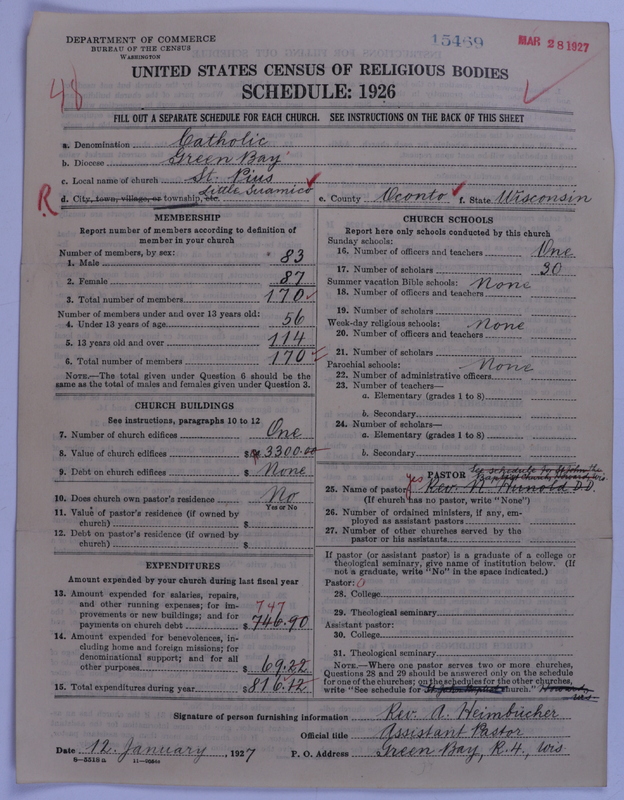 DEPARTMENT OF COMMERCE
BUREAU OF THE CENSUS
WASHINGTON
15469
MAR 28 1927
48
UNITED STATES CENSUS OF RELIGIOUS BODIES
SCHEDULE: 1926
FILL OUT A SEPARATE SCHEDULE FOR EACH CHURCH. SEE INSTRUCTIONS ON THE BACK OF THIS SHEET
a. Denomination Catholic
b. Diocese Green Bay
c. Local name of church St. Pius
R
d. City, town, village, or township, etc. Little Suamico e. County Oconto f. State Wisconsin
MEMBERSHIP
Report number of members according to definition of
member in your church
Number of members, by sex:
1. Male 83
2. Female 87
3. Total number of members 170
Number of members under and over 13 years old:
4. Under 13 years of age 56
5. 13 years old and over 114
6. Total number of members 170
NOTE.—The total given under Question 6 should be the
same as the total of males and females given under Question 3.
CHURCH BUILDINGS
See instructions, paragraphs 10 to 12
7. Number of church edifices One
8. Value of church edifices $ 3300.00
9. Debt on church edifices $ None
10. Does church own pastor's residence No
Yes or No
11. Value of pastor's residence (if owned by
church) $
12. Debt on pastor's residence (if owned by
church) $
EXPENDITURES
Amount expended by your church during last fiscal year
13. Amount expended for salaries, repairs,
and other running expenses; for im-
provements or new buildings; and for
payments on church debt $ 746.90
747
14. Amount expended for benevolences, in-
cluding home and foreign missions; for
denominational support; and for all
other purposes $ 69.22
15. Total expenditures during year $ 816.12
CHURCH SCHOOLS
Report here only schools conducted by this church
Sunday schools:
16. Number of officers and teachers One
17. Number of scholars 30
Summer vacation Bible schools: None
18. Number of officers and teachers
19. Number of scholars
Week-day religious schools: None
20. Number of officers and teachers
21. Number of scholars
Parochial schools: None
22. Number of administrative officers
23. Number of teachers—
a. Elementary (grades 1 to 8)
b. Secondary
24. Number of scholars—
a. Elementary (grades 1 to 8)
b. Secondary
PASTOR See schedule for St. John the
Baptist Church, Howard, Wis.
25. Name of pastor yes Rev. N. Hunold D.D.
(If church has no pastor, write "None")
26. Number of ordained ministers, if any, em-
ployed as assistant pastors
27. Number of other churches served by the
pastor or his assistants
If pastor (or assistant pastor) is a graduate of a college or
theological seminary, give name of institution below. (If
not a graduate, write "No" in the space indicated.)
Pastor: 0
28. College
29. Theological seminary
Assistant pastor:
30. College
31. Theological seminary
NOTE.—Where one pastor serves two or more churches,
Questions 28 and 29 should be answered only on the schedule
for one of the churches; on the schedules for the other churches,
write "See schedule for St. John Baptist church." Howard,
Wis
Signature of person furnishing information Rev. A. Heimbucher
Official title Assistant Pastor
Date 12. January, 1927 P. O. Address Green Bay, R.4, Wis
8—5518 a